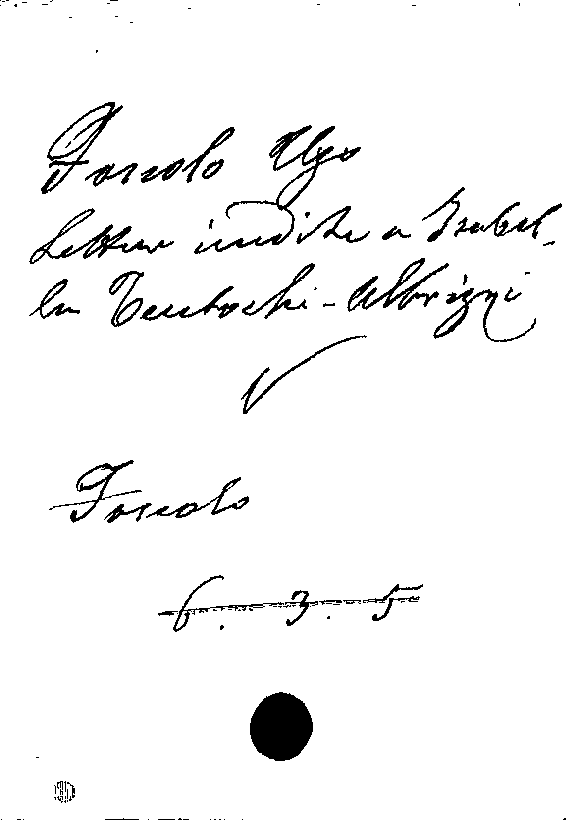 Foscolo Ugo
Lettere inedite a Isabel-
la Teotochi-Albrizzi
Foscolo
6. 3. 5